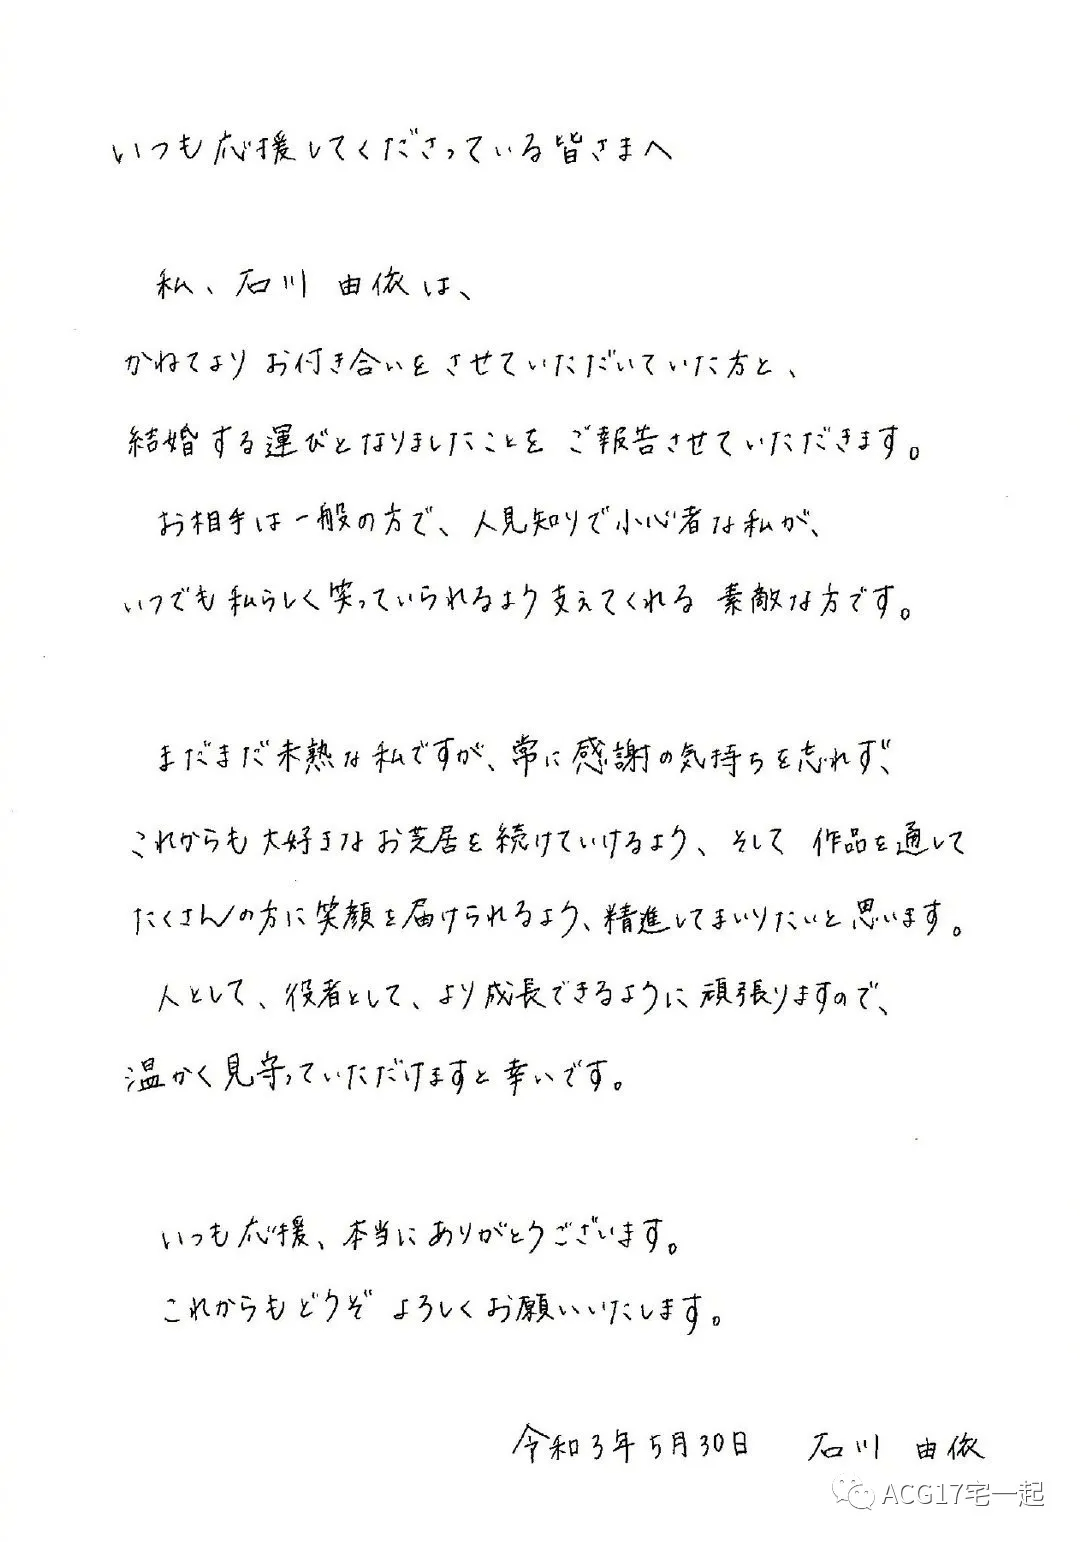 いつも応援してくださっている皆さまへ
私、石川 由依は、
かねてより お付き合いを させていただいていた方と、
結婚する運びとなりましたことを ご報告させていただきます。
お相手は一般の方で、人見知りで小心者な私が、
いつでも私らしく笑っていられるよう支えてくれる 素敵な方です。
まだまだ未熟な私ですが、常に感謝の気持ちを忘れず、
これからも大好きなお芝居を続けていけるよう、そして 作品を通して
たくさんの方に笑顔を届けられるよう、精進してまいりたいと思います。
人として、役者として、より成長できるように頑張りますので、
温かく見守っていただけますと幸いです。
いつも応援、本当にありがとうございます。
これからもどうぞ よろしくお願いいたします。
令和3年5月30日 石川 由依
ACG17宅一起